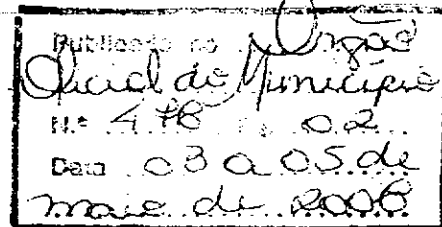 Publicado no Órgão
Oficial do Município
N.º 478 Pg. 02
Data 03 a 05 de
maio de 2006